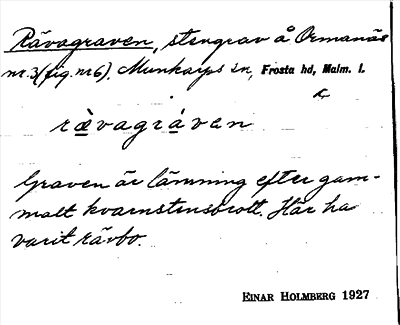 Rävagraven, stengrav å Ormanäs
nr. 3 (fig. nr 6), Munkarps sn, Frosta hd, Malm. l.
rävagráven
Graven är lämning efter gam-
malt kvarnstensbrott. Här ha
varit rävbo.
EINAR HOLMBERG 1927